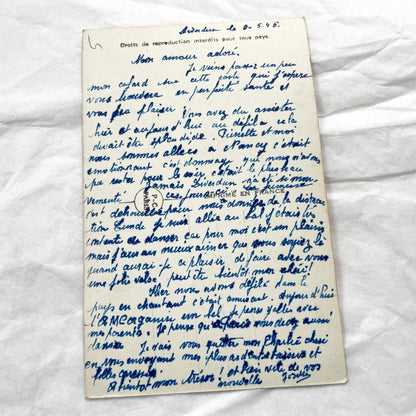 Dieulouard le 9.5.45.
Droits de reproduction interdits pour tous pays.
Mon amour adoré.
Je viens passer un peu
mon cafard sur cette carte qui j'espère
vous trouvera en parfaite santé et
vous fera plaisir. Vous avez du assister
hier et aujourd'hui au défilé cela
devait être splendide. Pierrette et moi
nous sommes allées à Nancy c'était
émotionnant c'est dommage que nous n'avons
pas resté pour le soir, c'était le plus beau
Jamais
vements ces jours la jeunesse
IMPRIMÉ EN FRANCE
c'est dehouillée pour nous donner de la distrac
tion Lundi je suis allée au bal j'étais bien
contente de danser car pour moi c'est un plaisir
mais j'aurais mieux aimer que vous soyez là
quand aurai-je ce plaisir, de faire avec vous
une folle valse peut être bientôt mon chéri!
Hier nous avons défilé dans le
pays en chantant c'était amusant. Aujourd'hui
organise un bal je pense y aller avec
mes parents. Je pense que
danser. Je vais vous quitter mon Charlie chéri
en vous envoyant mes plus ardents baisers et
folles caresses
A bientôt mon trésor! et bien vite de vos
nouvelles